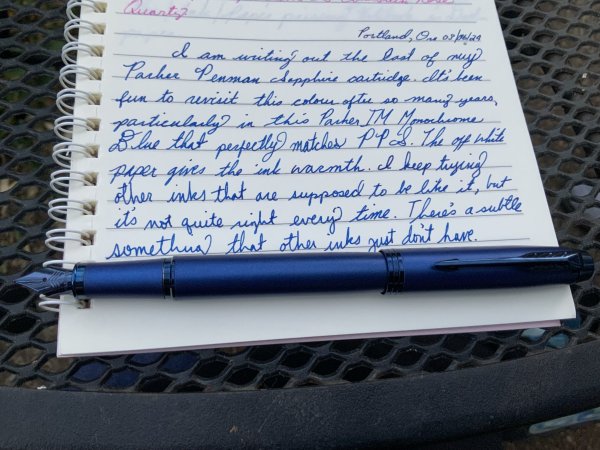 Quartz
Portland, Ore 08/06/24
I am writing out the last of my
Parker Penman Sapphire cartridge. It's been
fun to revisit this colour after so many years,
particularly in this Parker IM Monochrome
Blue that perfectly matches PPS. The off white
paper gives the ink warmth. I keep trying
other inks that are supposed to be like it, but
it's not quite right every time. There's a subtle
something that other inks just don't have.